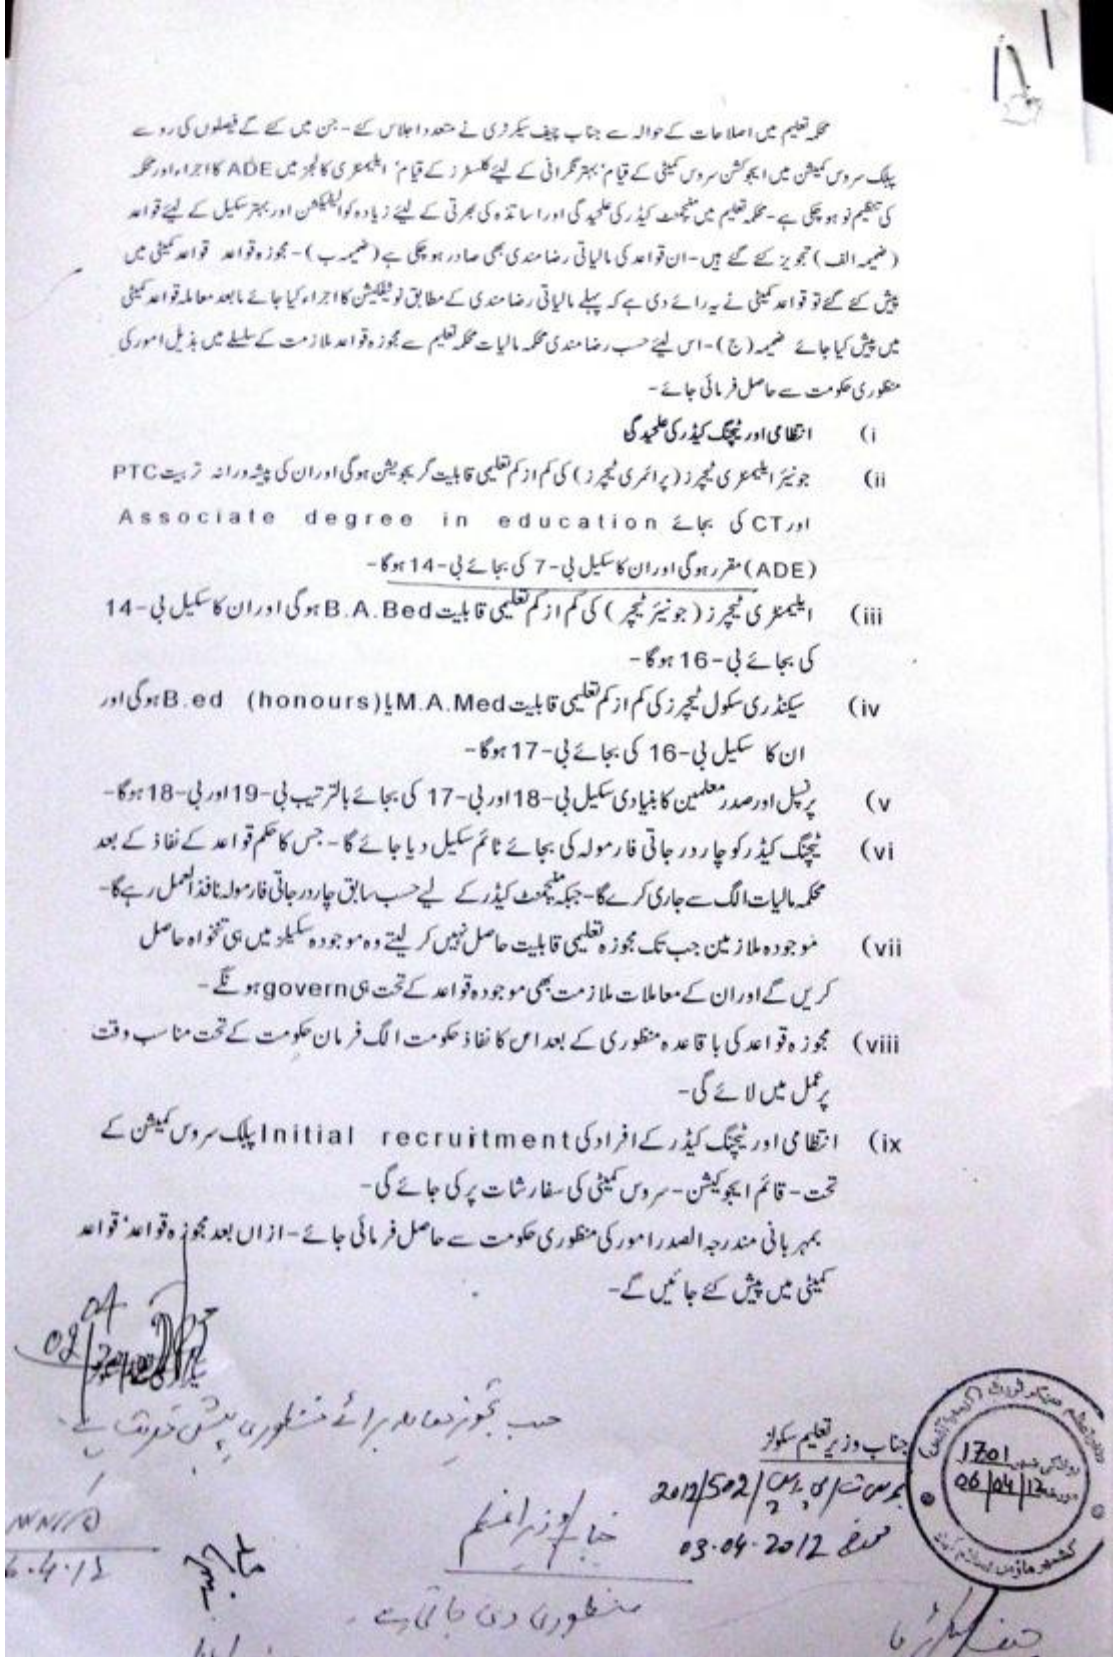 محکمہ تعلیم میں اصلاحات کے حوالہ سے جناب چیف سیکرٹری نے متعدد اجلاس کئے - جن میں کئے گے فیصلوں کی رو سے
پبلک سروس کمیشن میں ایجوکشن سروس کمیٹی کے قیام' بہتر نگرانی کے لیئے کلسٹرز کے قیام' ایلیمنٹری کالجز میں ADE کا اجراء اور محکمہ
کی تنظیم نو ہو چکی ہے - محکمہ تعلیم میں منیجمنٹ کیڈر کی علحید گی اور اساتذہ کی بھرتی کے لیئے زیادہ کوالیفکیشن اور بہتر سکیل کے لیئے قواعد
(ضمیمہ الف) تجویز کئے گئے ہیں - ان قواعد کی مالیاتی رضامندی بھی صادر ہو چکی ہے (ضمیمہ ب) - مجوزہ قواعد قواعد کمیٹی میں
پیش کئے گئے تو قواعد کمیٹی نے یہ رائے دی ہے کہ پہلے مالیاتی رضامندی کے مطابق نوٹیفکیشن کا اجراء کیا جائے مابعد معاملہ قواعد کمیٹی
میں پیش کیا جائے ضمیمہ (ج) - اس لیئے حسب رضامندی محکمہ مالیات محکمہ تعلیم سے مجوزہ قواعد ملازمت کے سلسلے میں بذیل امور کی
منظوری حکومت سے حاصل فرمائی جائے -
i) انتظامی اور ٹیچنگ کیڈر کی علحید گی
ii) جونیئر ایلیمنٹری ٹیچرز (پرائمری ٹیچرز) کی کم از کم تعلیمی قابلیت گریجویشن ہوگی اور ان کی پیشہ ورانہ تربیت PTC
اور CT کی بجائے Associate degree in education
(ADE) مقرر ہوگی اور ان کا سکیل بی-7 کی بجائے بی-14 ہوگا -
iii) ایلیمنٹری ٹیچرز (جونیئر ٹیچر) کی کم از کم تعلیمی قابلیت B.A.Bed ہوگی اور ان کا سکیل بی-14
کی بجائے بی-16 ہوگا -
iv) سیکنڈری سکول ٹیچرز کی کم از کم تعلیمی قابلیت M.A.Med یا B.ed (honours) ہوگی اور
ان کا سکیل بی-16 کی بجائے بی-17 ہوگا -
v) پرنسپل اور صدر معلمین کا بنیادی سکیل بی-18 اور بی-17 کی بجائے بالترتیب بی-19 اور بی-18 ہوگا -
vi) ٹیچنگ کیڈر کو چار درجاتی فارمولہ کی بجائے ٹائم سکیل دیا جائے گا - جس کا حکم قواعد کے نفاذ کے بعد
محکمہ مالیات الگ سے جاری کرے گا - جبکہ منیجمنٹ کیڈر کے لیے حسب سابق چار درجاتی فارمولہ نافذ العمل رہے گا -
vii) موجودہ ملازمین جب تک مجوزہ تعلیمی قابلیت حاصل نہیں کر لیتے وہ موجودہ سکیلز میں ہی تنخواہ حاصل
کریں گے اور ان کے معاملات ملازمت بھی موجودہ قواعد کے تحت ہی govern ہونگے -
viii) مجوزہ قواعد کی باقاعدہ منظوری کے بعد اس کا نفاذ حکومت الگ فرمان حکومت کے تحت مناسب وقت
پر عمل میں لائے گی -
ix) انتظامی اور ٹیچنگ کیڈر کے افراد کی Initial recruitment پبلک سروس کمیشن کے
تحت - قائم ایجوکیشن - سروس کمیٹی کی سفارشات پر کی جائے گی -
بمہربانی مندرجہ الصدر امور کی منظوری حکومت سے حاصل فرمائی جائے - ازاں بعد مجوزہ قواعد' قواعد
کمیٹی میں پیش کئے جائیں گے -
حسب تجویز معاملہ برائے منظوری پیش خدمت ہے -
جناب وزیر تعلیم سکولز
2012/502
03-04-2012
1701
06/04/12
جناب وزیراعظم
منظوری دی جاتی ہے -